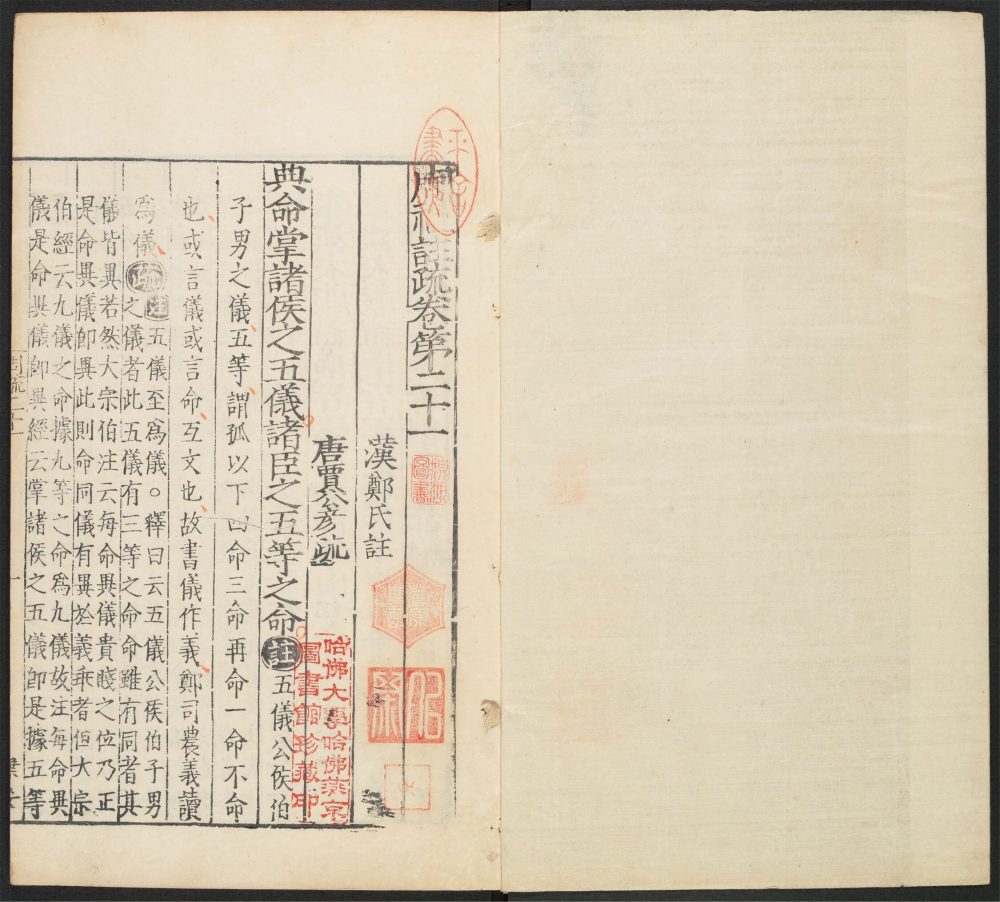 周禮註疏卷第二十一
漢鄭氏註
唐賈公彥疏
典命掌諸侯之五儀諸臣之五等之命註五儀公侯伯
子男之儀五等謂孤以下四命三命再命一命不命
也或言儀或言命互文也故書儀作義鄭司農義讀
爲儀疏註五儀至爲儀○釋曰云五儀公侯伯子男
之儀者此五儀有三等之命命雖有同者其
儀皆異若然大宗伯注云每命異儀貴賤之位乃正
是命異儀卽異此則命同儀有異於義乖者但大宗
伯經云九儀之命據九等之命爲九儀故注每命異
儀是命異儀卽異經云掌諸侯之五儀卽是據五等
哈佛大學哈佛燕京
圖書館珍藏印
圖書